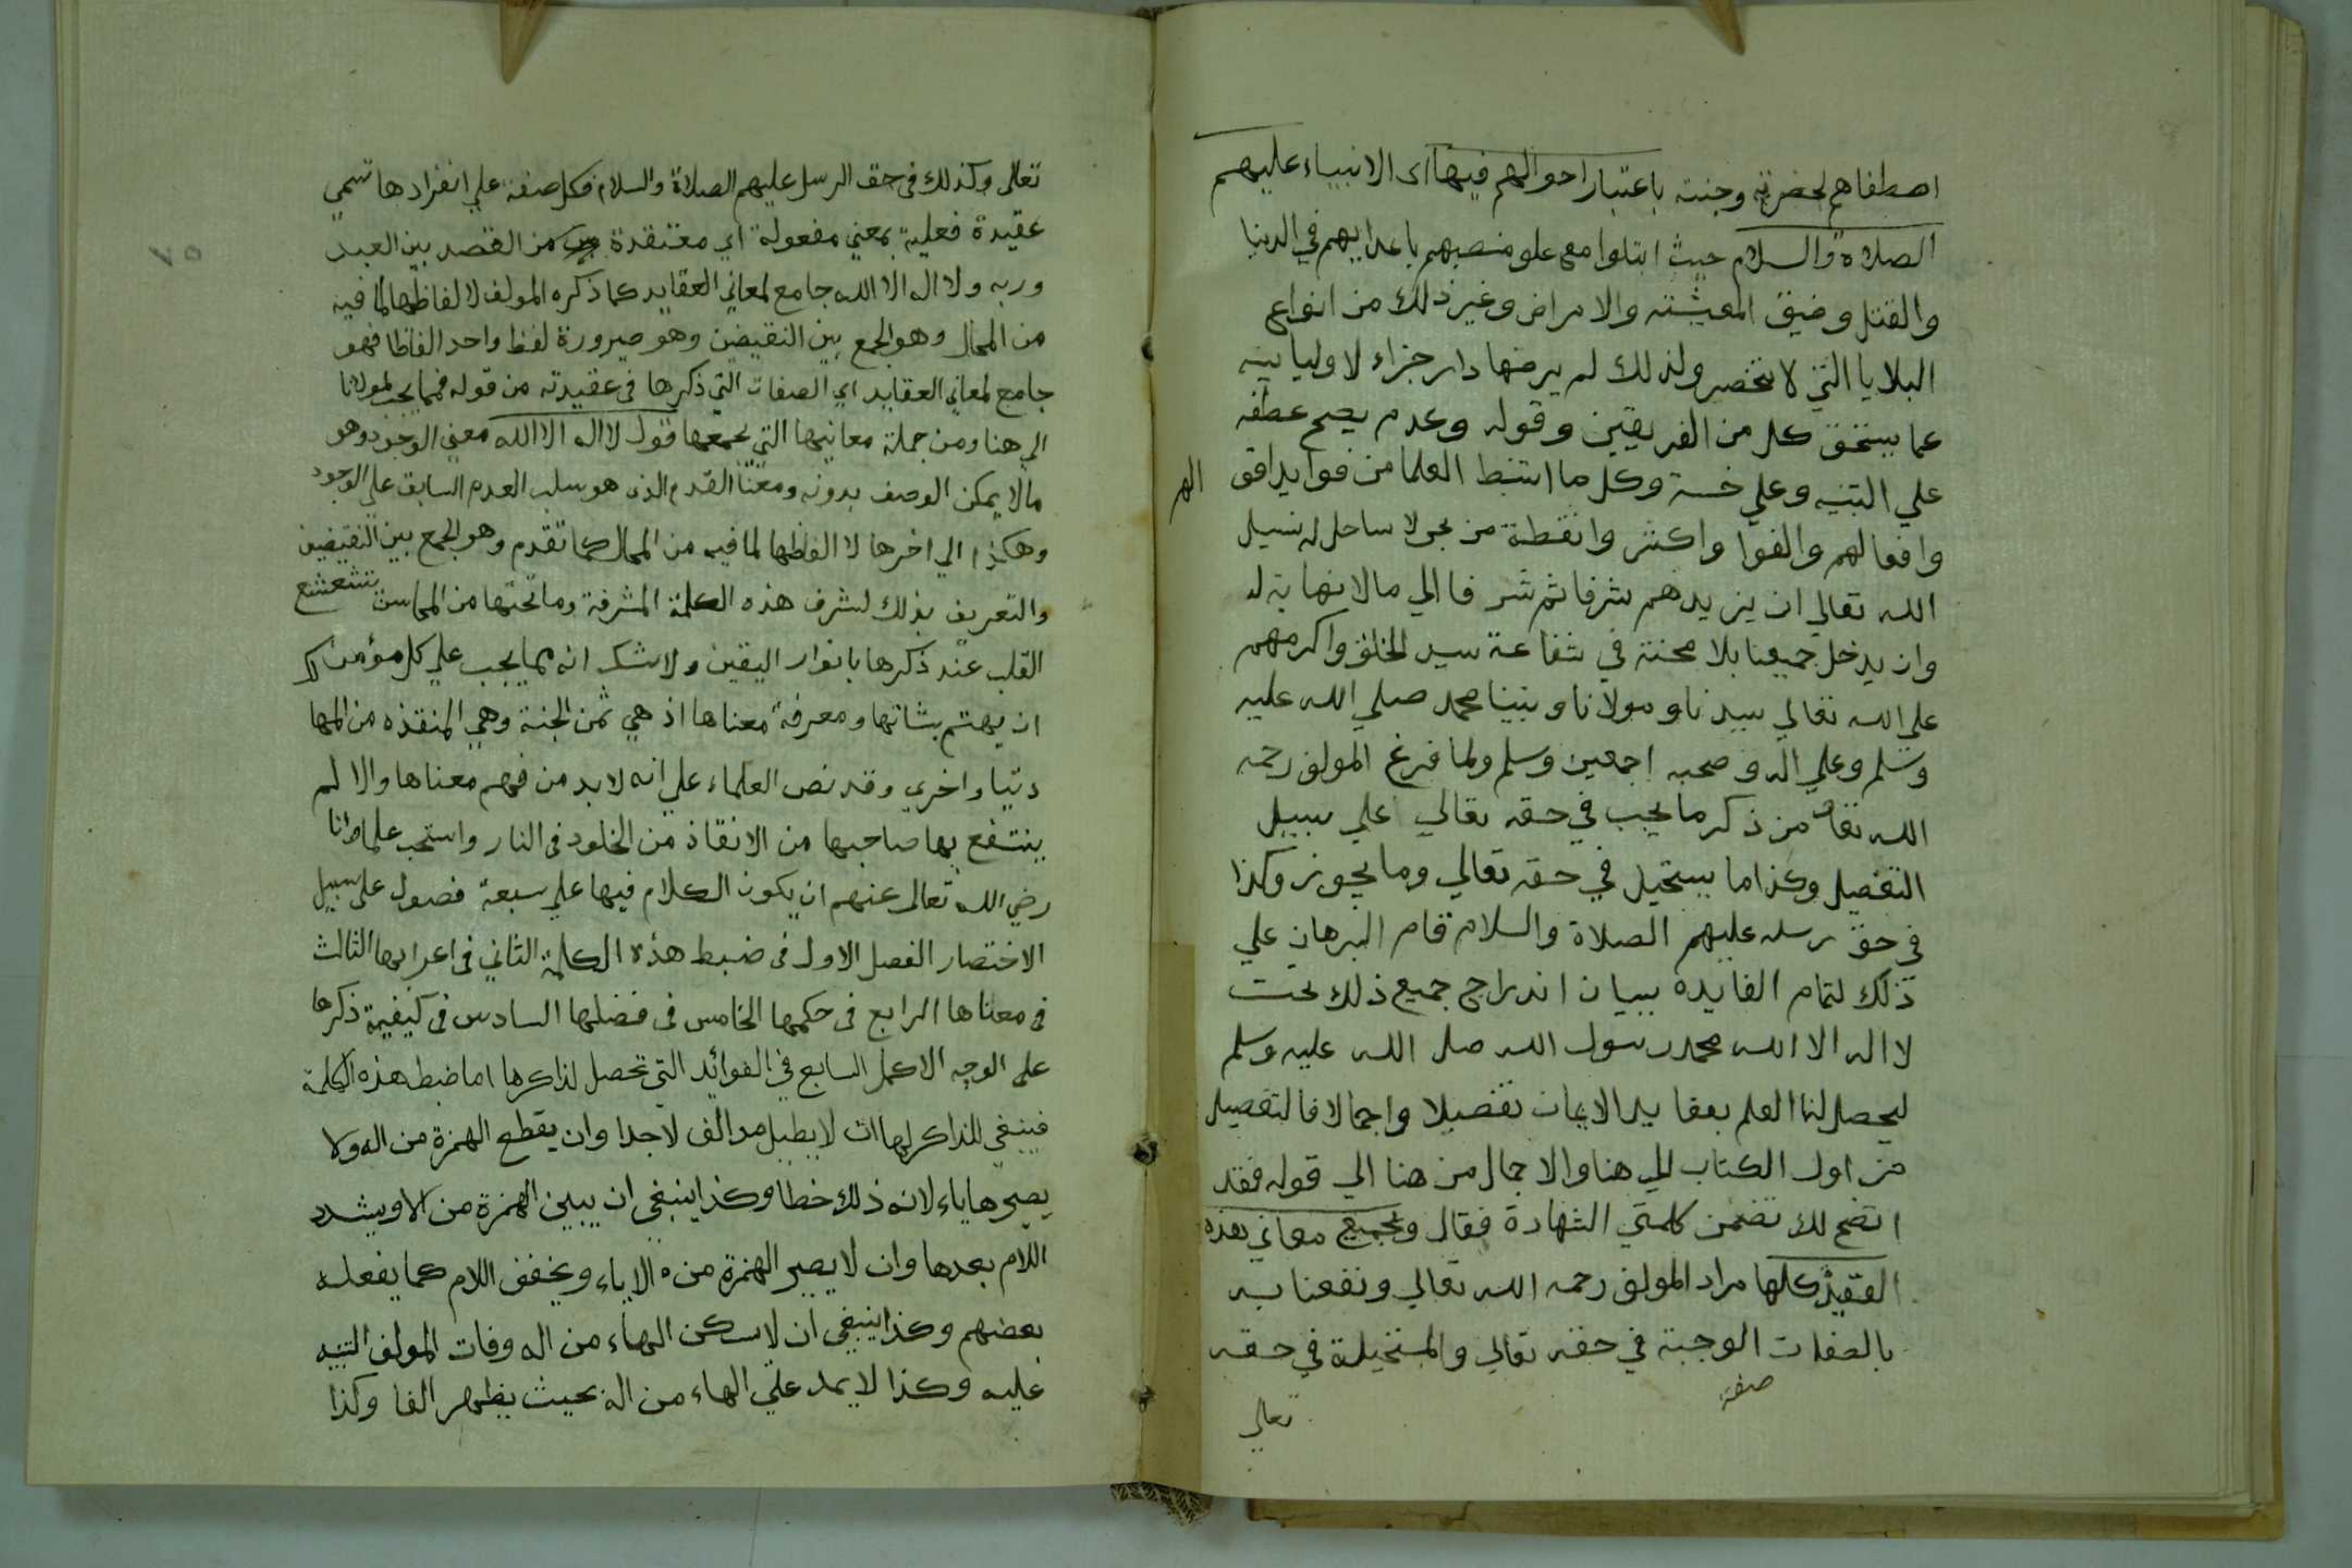 اصطفاهم لحضرته وجنته باعتبار احوالهم فيها اى الانبياء عليهم
الصلاة والسلام حيث ابتلوا مع علو منصبهم باعدايهم في الدنيا
والقتل وضيق المعيشته والامراض وغير ذلك من انواع
البلايا التي لا تنحصر ولذلك لم يرضها دار جزاء لاوليايه
عما يستحق كل من الفريقين وقوله وعدم يصح عطفه
علي التنبيه وعلي خسة وكل ما استنبط العلما من فوايد اقو الهم
وافعالهم والفوا واكثر وانقطة من بحر لا ساحل له نسيل
الله تعالي ان يزيدهم شرفا ثم شرفا الي مالا نهاية له
وان يدخل جميعنا بلا محنة في شفاعة سيد الخلق واكرمهم
على الله تعالي سيدنا ومولانا ونبينا محمد صلي الله عليه
وسلم وعلي اله وصحبه اجمعين وسلم ولما فرغ المولف رحمه
الله تعالى من ذكر ما يجب في حقه تعالي علي سبيل
التفصيل وكذا ما يستحيل في حقه تعالي وما يجوز وكذا
في حق رسله عليهم الصلاة والسلام قام البرهان علي
ذلك لتمام الفايده ببيان اندراج جميع ذلك تحت
لا اله الا الله محمد رسول الله صلى الله عليه وسلم
ليحصل لنا العلم بعقايد الايمان تفصيلا واجمالا فالتفصيل
من اول الكتاب الي هنا والاجمال من هنا الي قوله فقد
اتضح لك تضمن كلمتي الشهادة فقال وبجميع معاني هذه
العقيدة كلها مراد المولف رحمه الله تعالي ونفعنا به
بالصفات الوجبة في حقه تعالي والمستحيلة في حقه
صفة
تعالي
تعالى وكذلك فى حق الرسل عليهم الصلاة والسلام فكل صفة علي انفرادها تسمي
عقيدة فعلية بمعني مفعولة اي معتقدة من القصد بين العبد
وربه ولا اله الا الله جامع لمعاني العقايد كما ذكره المولف لا لفاظها لما فيه
من المحال وهو الجمع بين النقيضين وهو صيرورة لفظ واحد الفاظا فهو
جامع لمعاني العقايد اي الصفات التي ذكرها فى عقيدته من قوله فمما يجب لمولانا
الي هنا ومن جملة معانيها التي تجمعها قول لا اله الا الله معني الوجود وهو
مالا يمكن الوصف بدونه ومعنا القدم الذي هو سلب العدم السابق علي الوجود
وهكذا الي اخرها لا الفاظها لما فيه من المحال كما تقدم وهو الجمع بين النقيضين
والتعريف بذلك لشرف هذه الكلمة المشرفة وما تحتها من المحاسن تتشعشع
القلب عند ذكرها بانوار اليقين ولا شك انه مما يجب علي كل مؤمن
ان يهتم بشانها ومعرفة معناها اذ هي ثمن الجنة وهي المنقذه من المها
دنيا واخري وقد نص العلماء علي انه لا بد من فهم معناها والا لم
ينتفع بها صاحبها من الانقاذ من الخلود فى النار واستحب علماؤنا
رضي الله تعالى عنهم ان يكون الكلام فيها علي سبعة فصول على سبيل
الاختصار الفصل الاول فى ضبط هذه الكلمة الثاني فى اعرابها الثالث
فى معناها الرابع فى حكمها الخامس فى فضلها السادس فى كيفية ذكرها
على الوجه الاكمل السابع في الفوائد التي تحصل لذاكرها اما ضبط هذه الكلمة
فينبغي للذاكر لها ان لا يطيل مد الف لا جدا وان يقطع الهمزة من اله ولا
يصيرها ياء لانه ذلك خطا وكذا ينبغي ان يبين الهمزة من الا ويشدد
اللام بعدها وان لا يصير الهمزة من الا ياء ويخفف اللام كما يفعله
بعضهم وكذا ينبغي ان لا سكن الهاء من اله وفات المولف التنبيه
عليه وكذا لا يمد علي الهاء من اله بحيث يظهر الفا وكذا